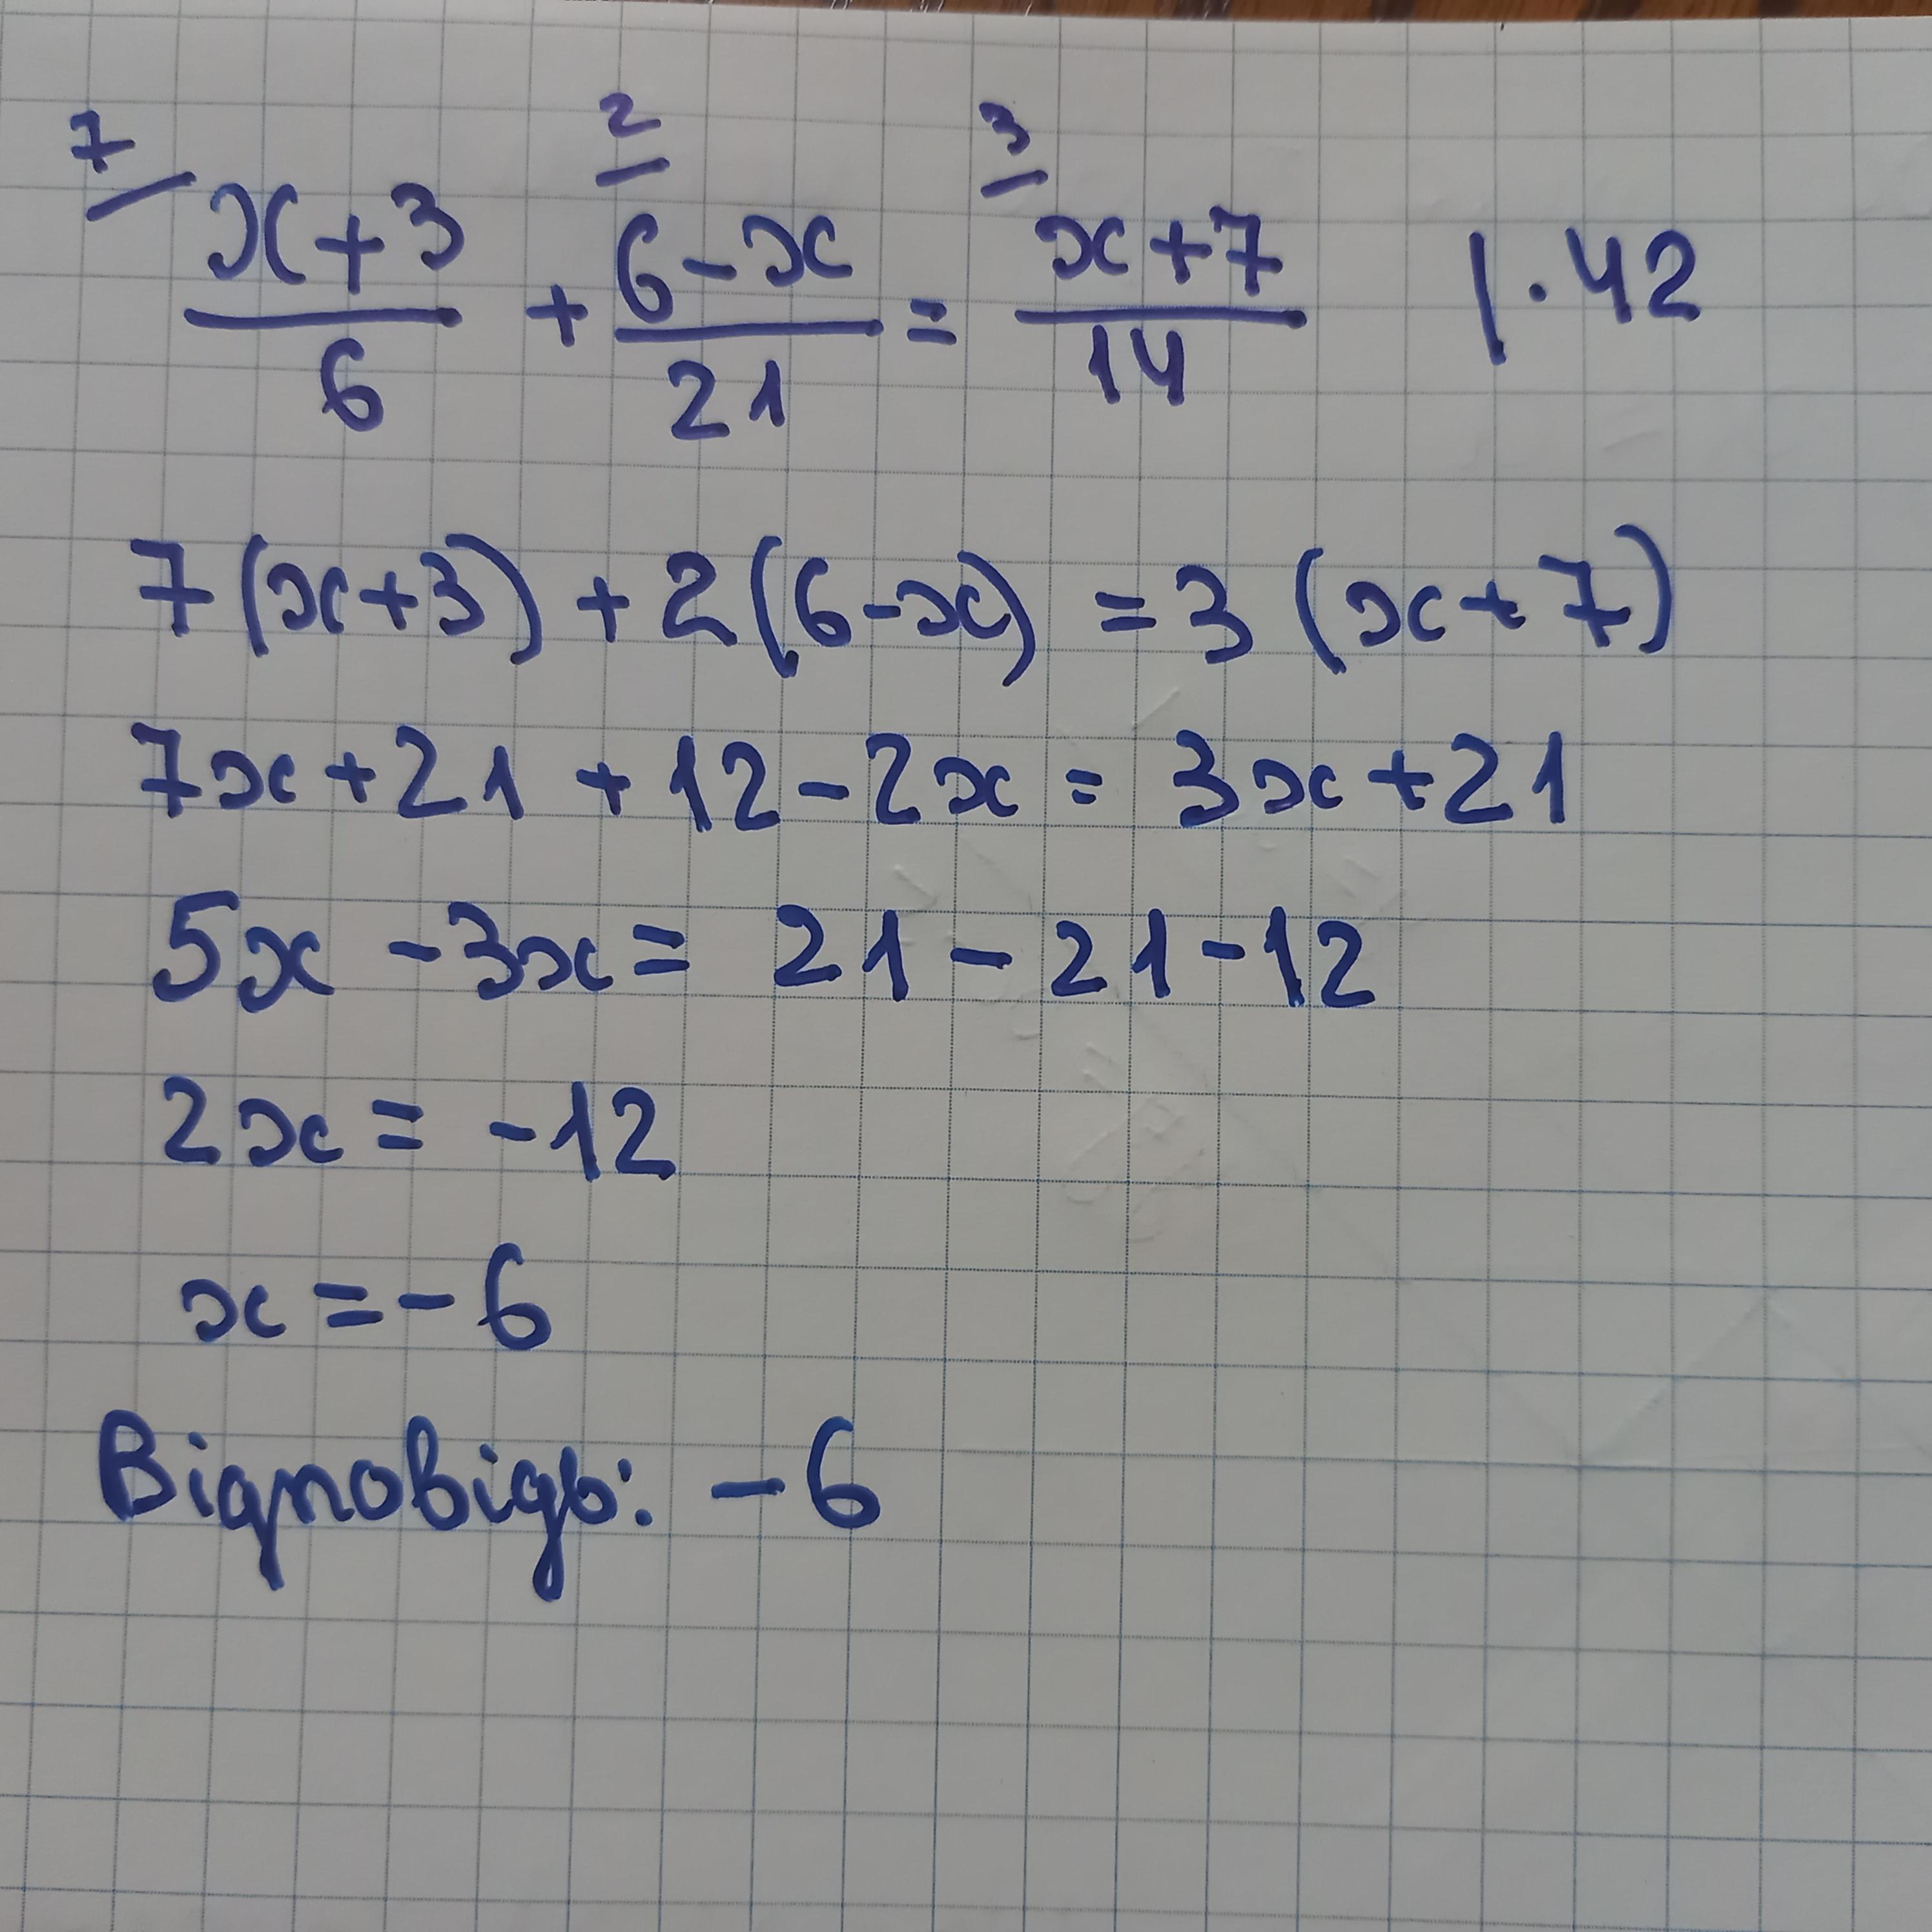 7 2 3
x+3/6 + 6-x/21 = x+7/14 |·42
7(x+3) + 2(6-x) = 3(x+7)
7x+21+12-2x = 3x+21
5x -3x = 21-21-12
2x = -12
x = -6
Відповідь: -6